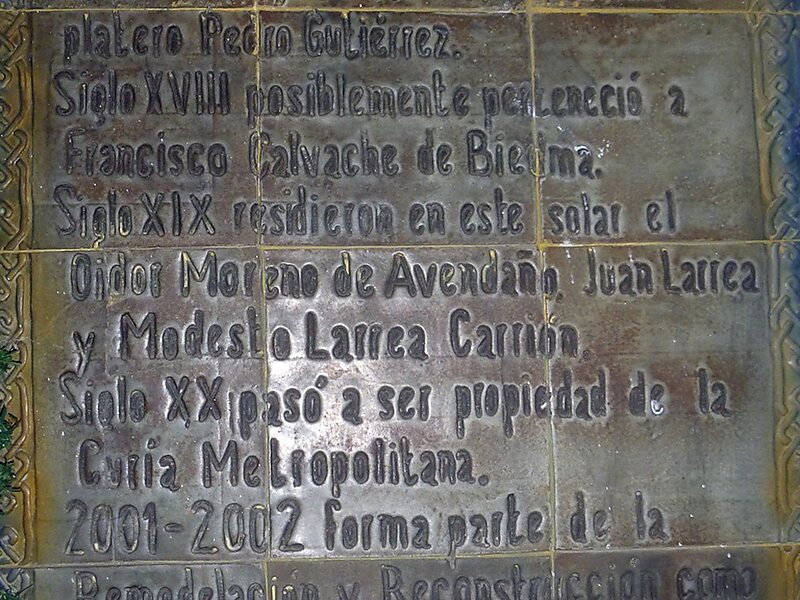 platero Pedro Gutiérrez.
Siglo XVIII posiblemente perteneció a
Francisco Calvache de Biedma.
Siglo XIX residieron en este solar el
Oidor Moreno de Avendaño, Juan Larrea
y Modesto Larrea Carrión.
Siglo XX pasó a ser propiedad de la
Cyría Metropolitana.
2001-2002 forma parte de la
Remodelacion y Reconstruccion como